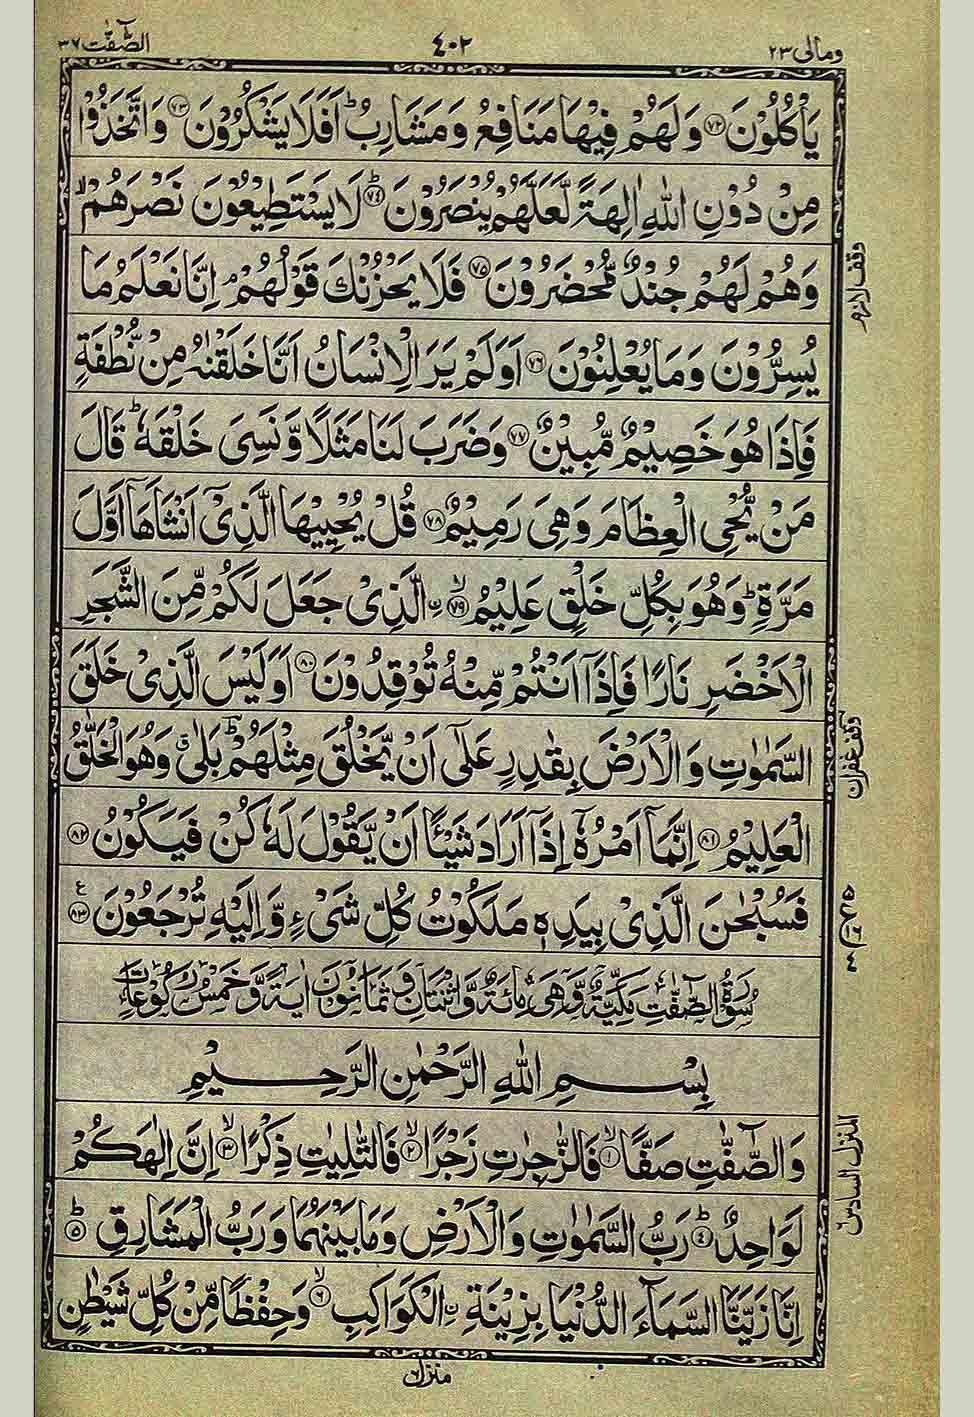 ومالی ٢٣
٤٠٢
الصّٰٓفّٰت ٣٧
يَاْكُلُوْنَ ﴿٧٢﴾ وَلَهُمْ فِيْهَا مَنَافِعُ وَمَشَارِبُ ؕ اَفَلَا يَشْكُرُوْنَ ﴿٧٣﴾ وَاتَّخَذُوْا
مِنْ دُوْنِ اللّٰهِ اٰلِهَةً لَّعَلَّهُمْ يُنْصَرُوْنَ ؕ﴿٧٤﴾ لَا يَسْتَطِيْعُوْنَ نَصْرَهُمْ ۙ
وَهُمْ لَهُمْ جُنْدٌ مُّحْضَرُوْنَ ﴿٧٥﴾ فَلَا يَحْزُنْكَ قَوْلُهُمْ ۘ اِنَّا نَعْلَمُ مَا
وقف لازم
يُسِرُّوْنَ وَمَا يُعْلِنُوْنَ ﴿٧٦﴾ اَوَلَمْ يَرَ الْاِنْسَانُ اَنَّا خَلَقْنٰهُ مِنْ نُّطْفَةٍ
فَاِذَا هُوَ خَصِيْمٌ مُّبِيْنٌ ﴿٧٧﴾ وَضَرَبَ لَنَا مَثَلًا وَّنَسِىَ خَلْقَهٗ ؕ قَالَ
مَنْ يُّحْىِ الْعِظَامَ وَهِىَ رَمِيْمٌ ﴿٧٨﴾ قُلْ يُحْيِيْهَا الَّذِىْٓ اَنْشَاَهَآ اَوَّلَ
مَرَّةٍ ؕ وَهُوَ بِكُلِّ خَلْقٍ عَلِيْمُ ۙ﴿٧٩﴾ ۨالَّذِىْ جَعَلَ لَكُمْ مِّنَ الشَّجَرِ
الْاَخْضَرِ نَارًا فَاِذَآ اَنْتُمْ مِّنْهُ تُوْقِدُوْنَ ﴿٨٠﴾ اَوَلَيْسَ الَّذِىْ خَلَقَ
السَّمٰوٰتِ وَالْاَرْضَ بِقٰدِرٍ عَلٰٓى اَنْ يَّخْلُقَ مِثْلَهُمْ ؕ بَلٰى ۗ وَهُوَ الْخَلّٰقُ
وقف غفران
الْعَلِيْمُ ﴿٨١﴾ اِنَّمَآ اَمْرُهٗٓ اِذَآ اَرَادَ شَيْـًٔا اَنْ يَّقُوْلَ لَهٗ كُنْ فَيَكُوْنُ ﴿٨٢﴾
فَسُبْحٰنَ الَّذِىْ بِيَدِهٖ مَلَكُوْتُ كُلِّ شَىْءٍ وَّاِلَيْهِ تُرْجَعُوْنَ ﴿٨٣﴾ ع
سُوْرَةُ الصّٰٓفّٰتِ مَكِّيَّةٌ وَّهِىَ مِائَةٌ وَّاثْنَتَانِ وَثَمَانُوْنَ اٰيَةً وَّخَمْسُ رُكُوْعَاتٍ
بِسْمِ اللّٰهِ الرَّحْمٰنِ الرَّحِيْمِ
المنزل السادس
وَالصّٰٓفّٰتِ صَفًّا ۙ﴿١﴾ فَالزّٰجِرٰتِ زَجْرًا ۙ﴿٢﴾ فَالتّٰلِيٰتِ ذِكْرًا ۙ﴿٣﴾ اِنَّ اِلٰهَكُمْ
لَوَاحِدٌ ؕ﴿٤﴾ رَبُّ السَّمٰوٰتِ وَالْاَرْضِ وَمَا بَيْنَهُمَا وَرَبُّ الْمَشَارِقِ ؕ﴿٥﴾
اِنَّا زَيَّنَّا السَّمَآءَ الدُّنْيَا بِزِيْنَةِ ۨالْكَوَاكِبِ ۙ﴿٦﴾ وَحِفْظًا مِّنْ كُلِّ شَيْطٰنٍ
منزل ٦